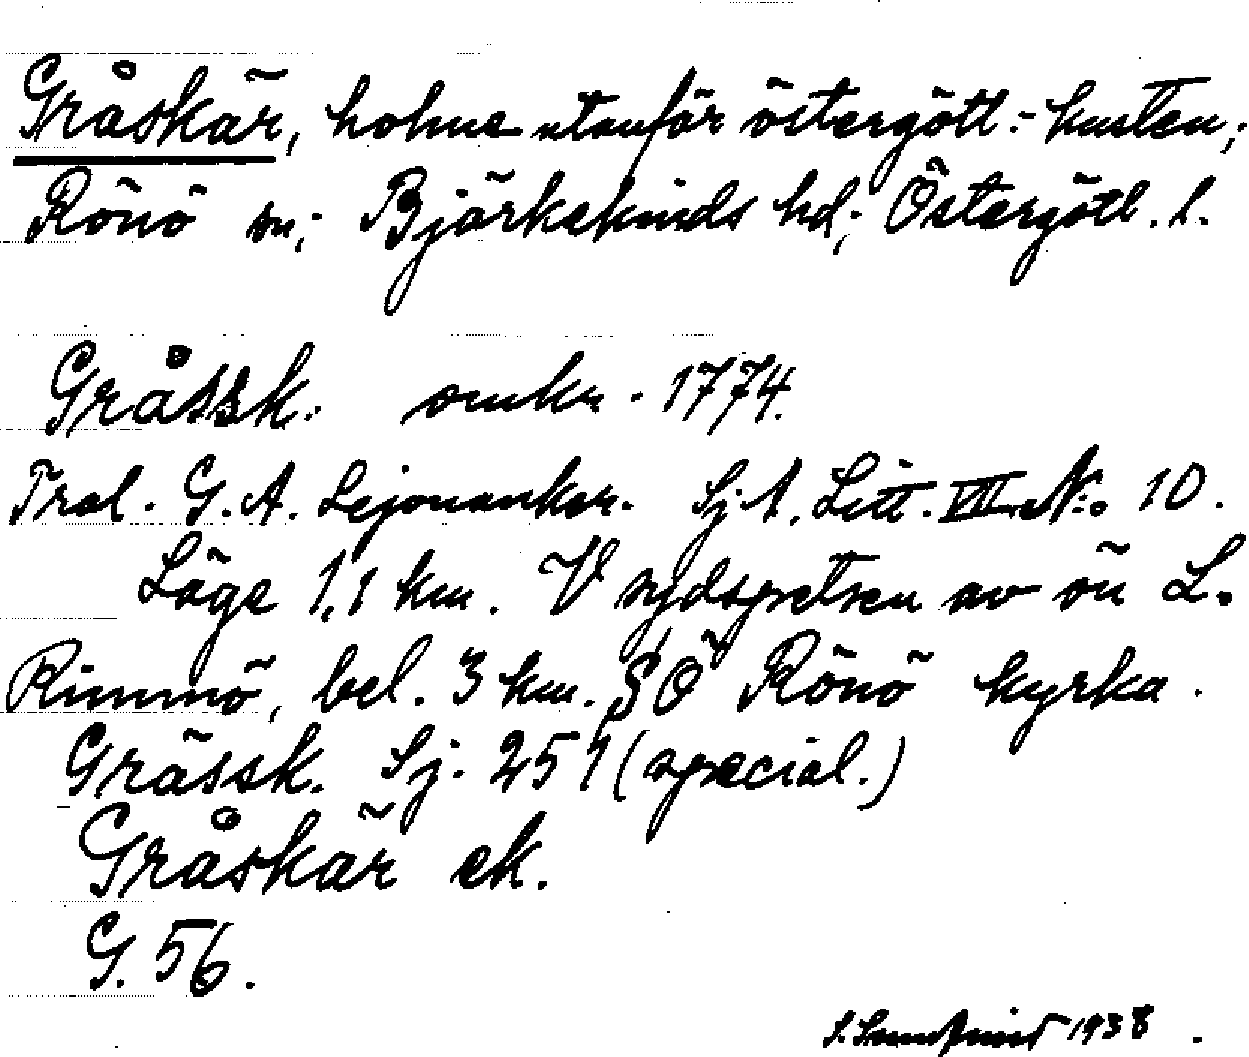 Gråskär, holme utanför östergötl:-kusten;
Rönö sn; Björkekinds hd; Östergötl. l.
Gråssk. omkr. 1774.
Tral. G. A. Lejonanker. Sj A. Litt. VII No 10.
Läge 1,1 km. V sydspetsen av ön L.
Rimmö, bel. 3 km. SÖ Rönö kyrka.
Grässk. Sj. 251 (special.)
Gråskär ek.
G. 56.
1938